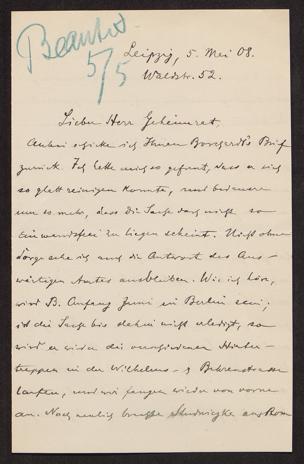 Beantw.
5/5
Leipzig, 5. Mei 08.
Waldstr. 52.
Lieber Herr Geheimrat,
Anbei schicke ich Ihnen Borchardts Brief
zurück. Ich hatte mich so gefreut, dass er sich
so glatt reinigen konnte, und bedauere
um so mehr, dass die Sache doch nicht so
einwandsfrei zu liegen scheint. Nicht ohne
Sorge sehe ich auch die Antwort des Aus-
wärtigen Amtes ausbleiben. Wie ich höre,
wird B. Anfang Juni in Berlin sein;
ist die Sache bis dahin nicht erledigt, so
wird er wieder die verschiedenen Hinter-
treppen in der Wilhelms- & Behrenstrasse
laufen, und wir fangen wieder von vorne
an. Noch neulich brachte Studniczka aus Rom